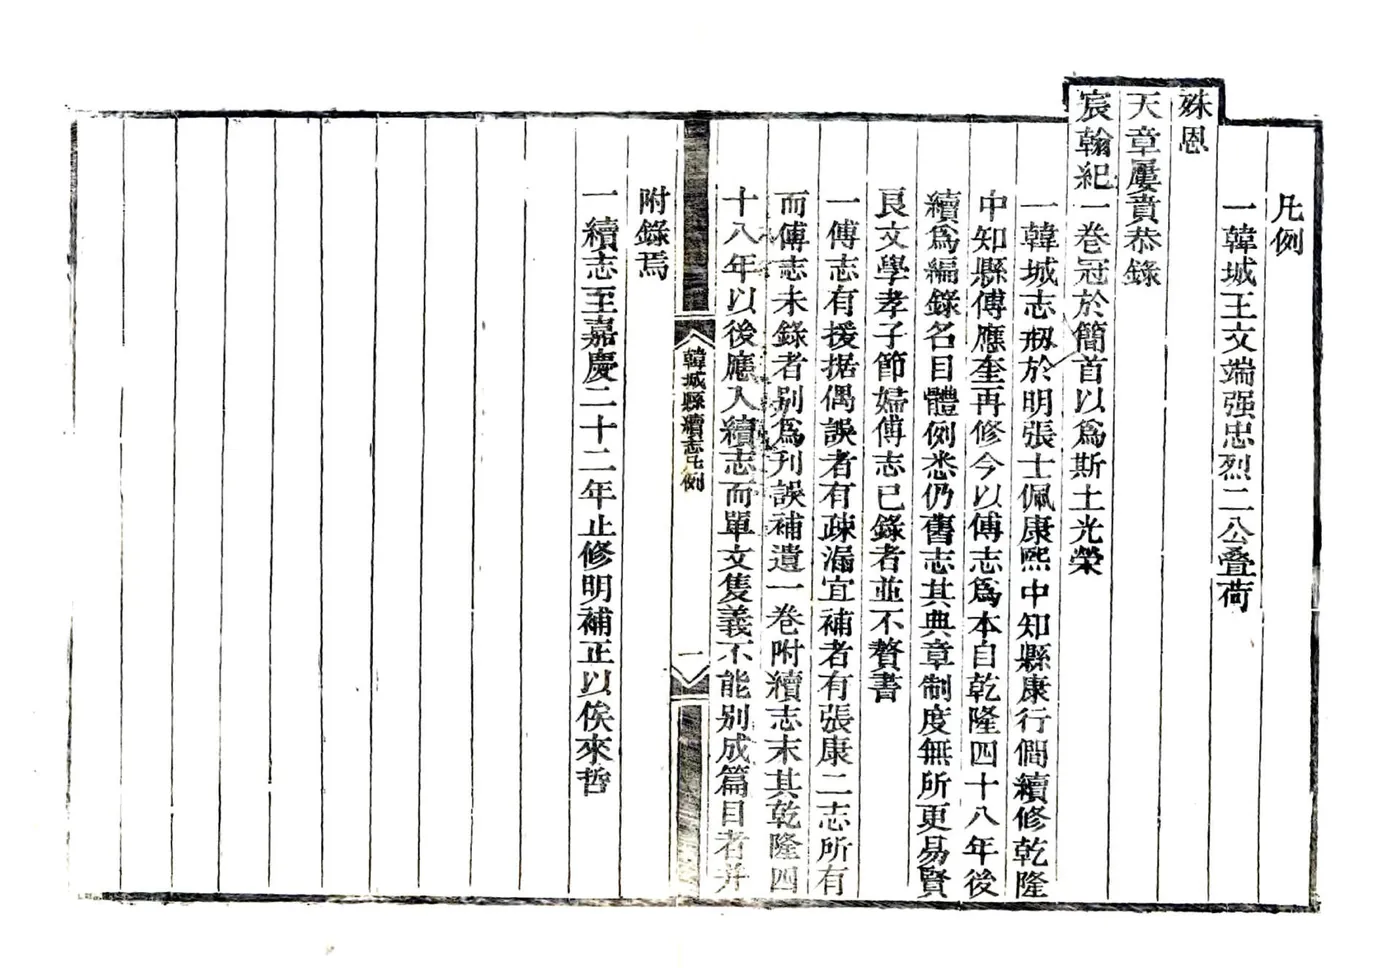 凡例
一韓城王文端强忠烈二公叠荷
殊恩
天章屢賁恭錄
宸翰紀一卷冠於簡首以爲斯土光榮
一韓城志刱於明張士佩康熙中知縣康行僴續修乾隆
中知縣傅應奎再修今以傅志爲本自乾隆四十八年後
續爲編錄名目體例悉仍舊志其典章制度無所更易賢
良文學孝子節婦傅志已錄者並不贅書
一傅志有援据偶誤者有疎漏宜補者有張康二志所有
而傅志未錄者别爲刋誤補遺一卷附續志末其乾隆四
十八年以後應入續志而單文隻義不能别成篇目者并
韓城縣續志凡例
一
附錄焉
一續志至嘉慶二十二年止修明補正以俟來哲